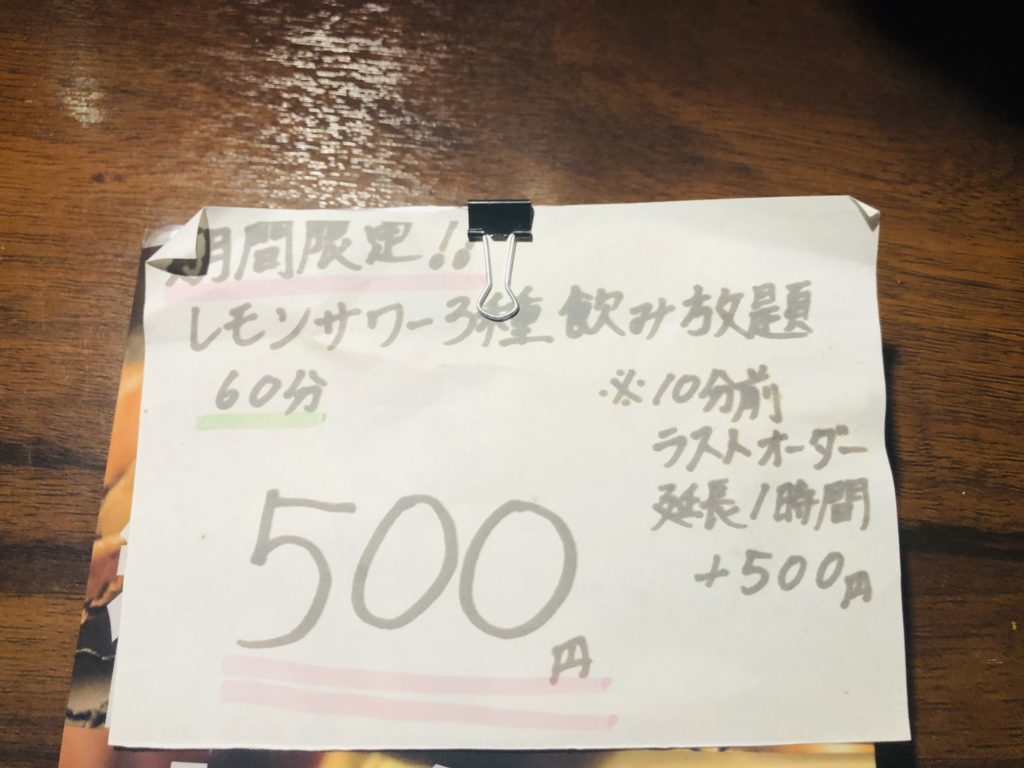 期間限定!!
レモンサワー3種飲み放題
60分
※10分前
ラストオーダー
延長1時間
+500円
500円